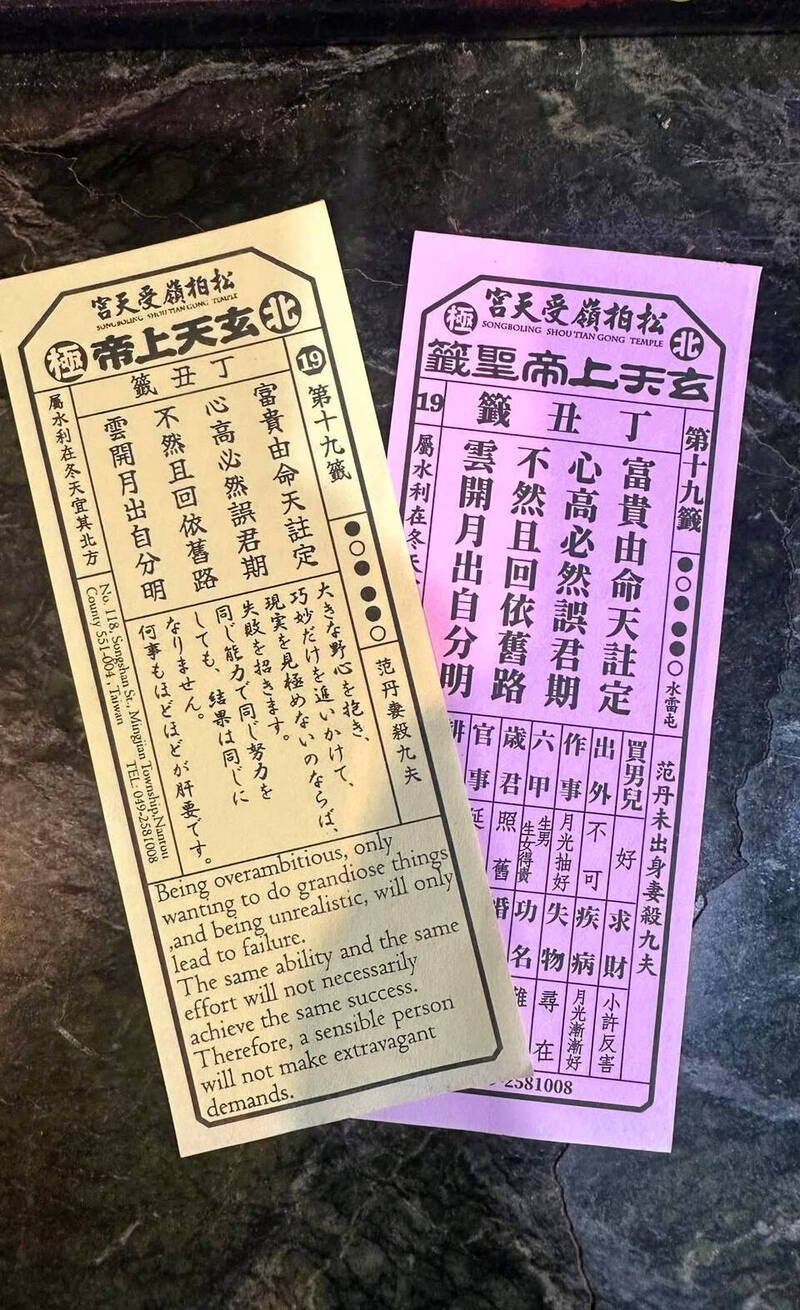 松柏嶺受天宮
SONGBOLING SHOU TIAN GONG TEMPLE
北極
玄天上帝
19
第十九籤
●○●●●○
范丹妻殺九夫
丁丑籤
富貴由命天註定
心高必然誤君期
不然且回依舊路
雲開月出自分明
屬水利在冬天宜其北方
大きな野心を抱き、
巧妙だけを追いかけて、
現実を見極めないのならば、
失敗を招きます。
同じ能力で同じ努力を
しても、結果は同じに
なりません。
何事もほどほどが肝要です。
No. 118, Songshan St., Mingjian Township, Nantou
County 551-004, Taiwan
TEL: 049-2581008
Being overambitious, only
wanting to do grandiose things
,and being unrealistic, will only
lead to failure.
The same ability and the same
effort will not necessarily
achieve the same success.
Therefore, a sensible person
will not make extravagant
demands.
松柏嶺受天宮
SONGBOLING SHOU TIAN GONG TEMPLE
北極
玄天上帝聖籤
第十九籤
●○●●●○
水雷屯
范丹未出身妻殺九夫
19
丁丑籤
富貴由命天註定
心高必然誤君期
不然且回依舊路
雲開月出自分明
屬水利在冬天
買男兒 好
出外 不可
作事 月光抽好
六甲 生男生女得貴
歲君 照舊
官事 延
耕
求財 小許反害
疾病 月光漸漸好
失物 尋在
功名 難
婚
2581008